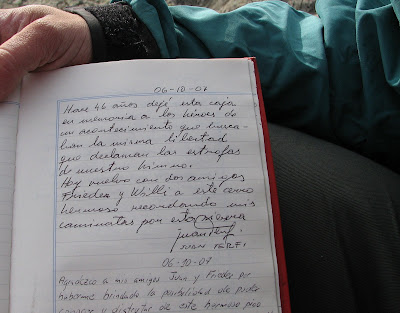 06-10-07
Hace 46 años dejé esta caja
en memoria a los héroes de
un acontecimiento que busca-
ban la misma libertad
que declaman las estrofas
de nuestro himno.
Hoy vuelvo con dos amigos
Frieder y Willi a este cerro
hermoso recordando mis
caminatas por esta
Juan
JUAN
06-10-07
Agradezco a mis amigos Juan y Frieder por
haberme brindado la posibilidad de poder
conocer y disfrutar de este hermoso